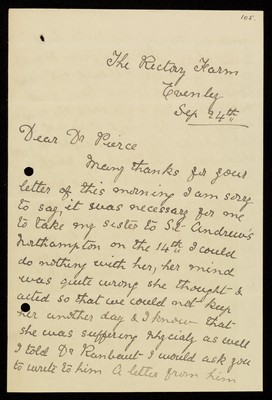 105.
The Rectory Farm
Evenley
Sep 24th
Dear Dr Pierce
Many thanks for your
letter of this morning I am sorry
to say, it was necessary for me
to take my sister to St Andrew's
Northampton on the 14th I could
do nothing with her, her mind
was quite wrong she thought &
acted so that we could not keep
her another day & I know that
she was suffering physicaly as well
I told Dr Rambaut I would ask you
to write to him A letter from him